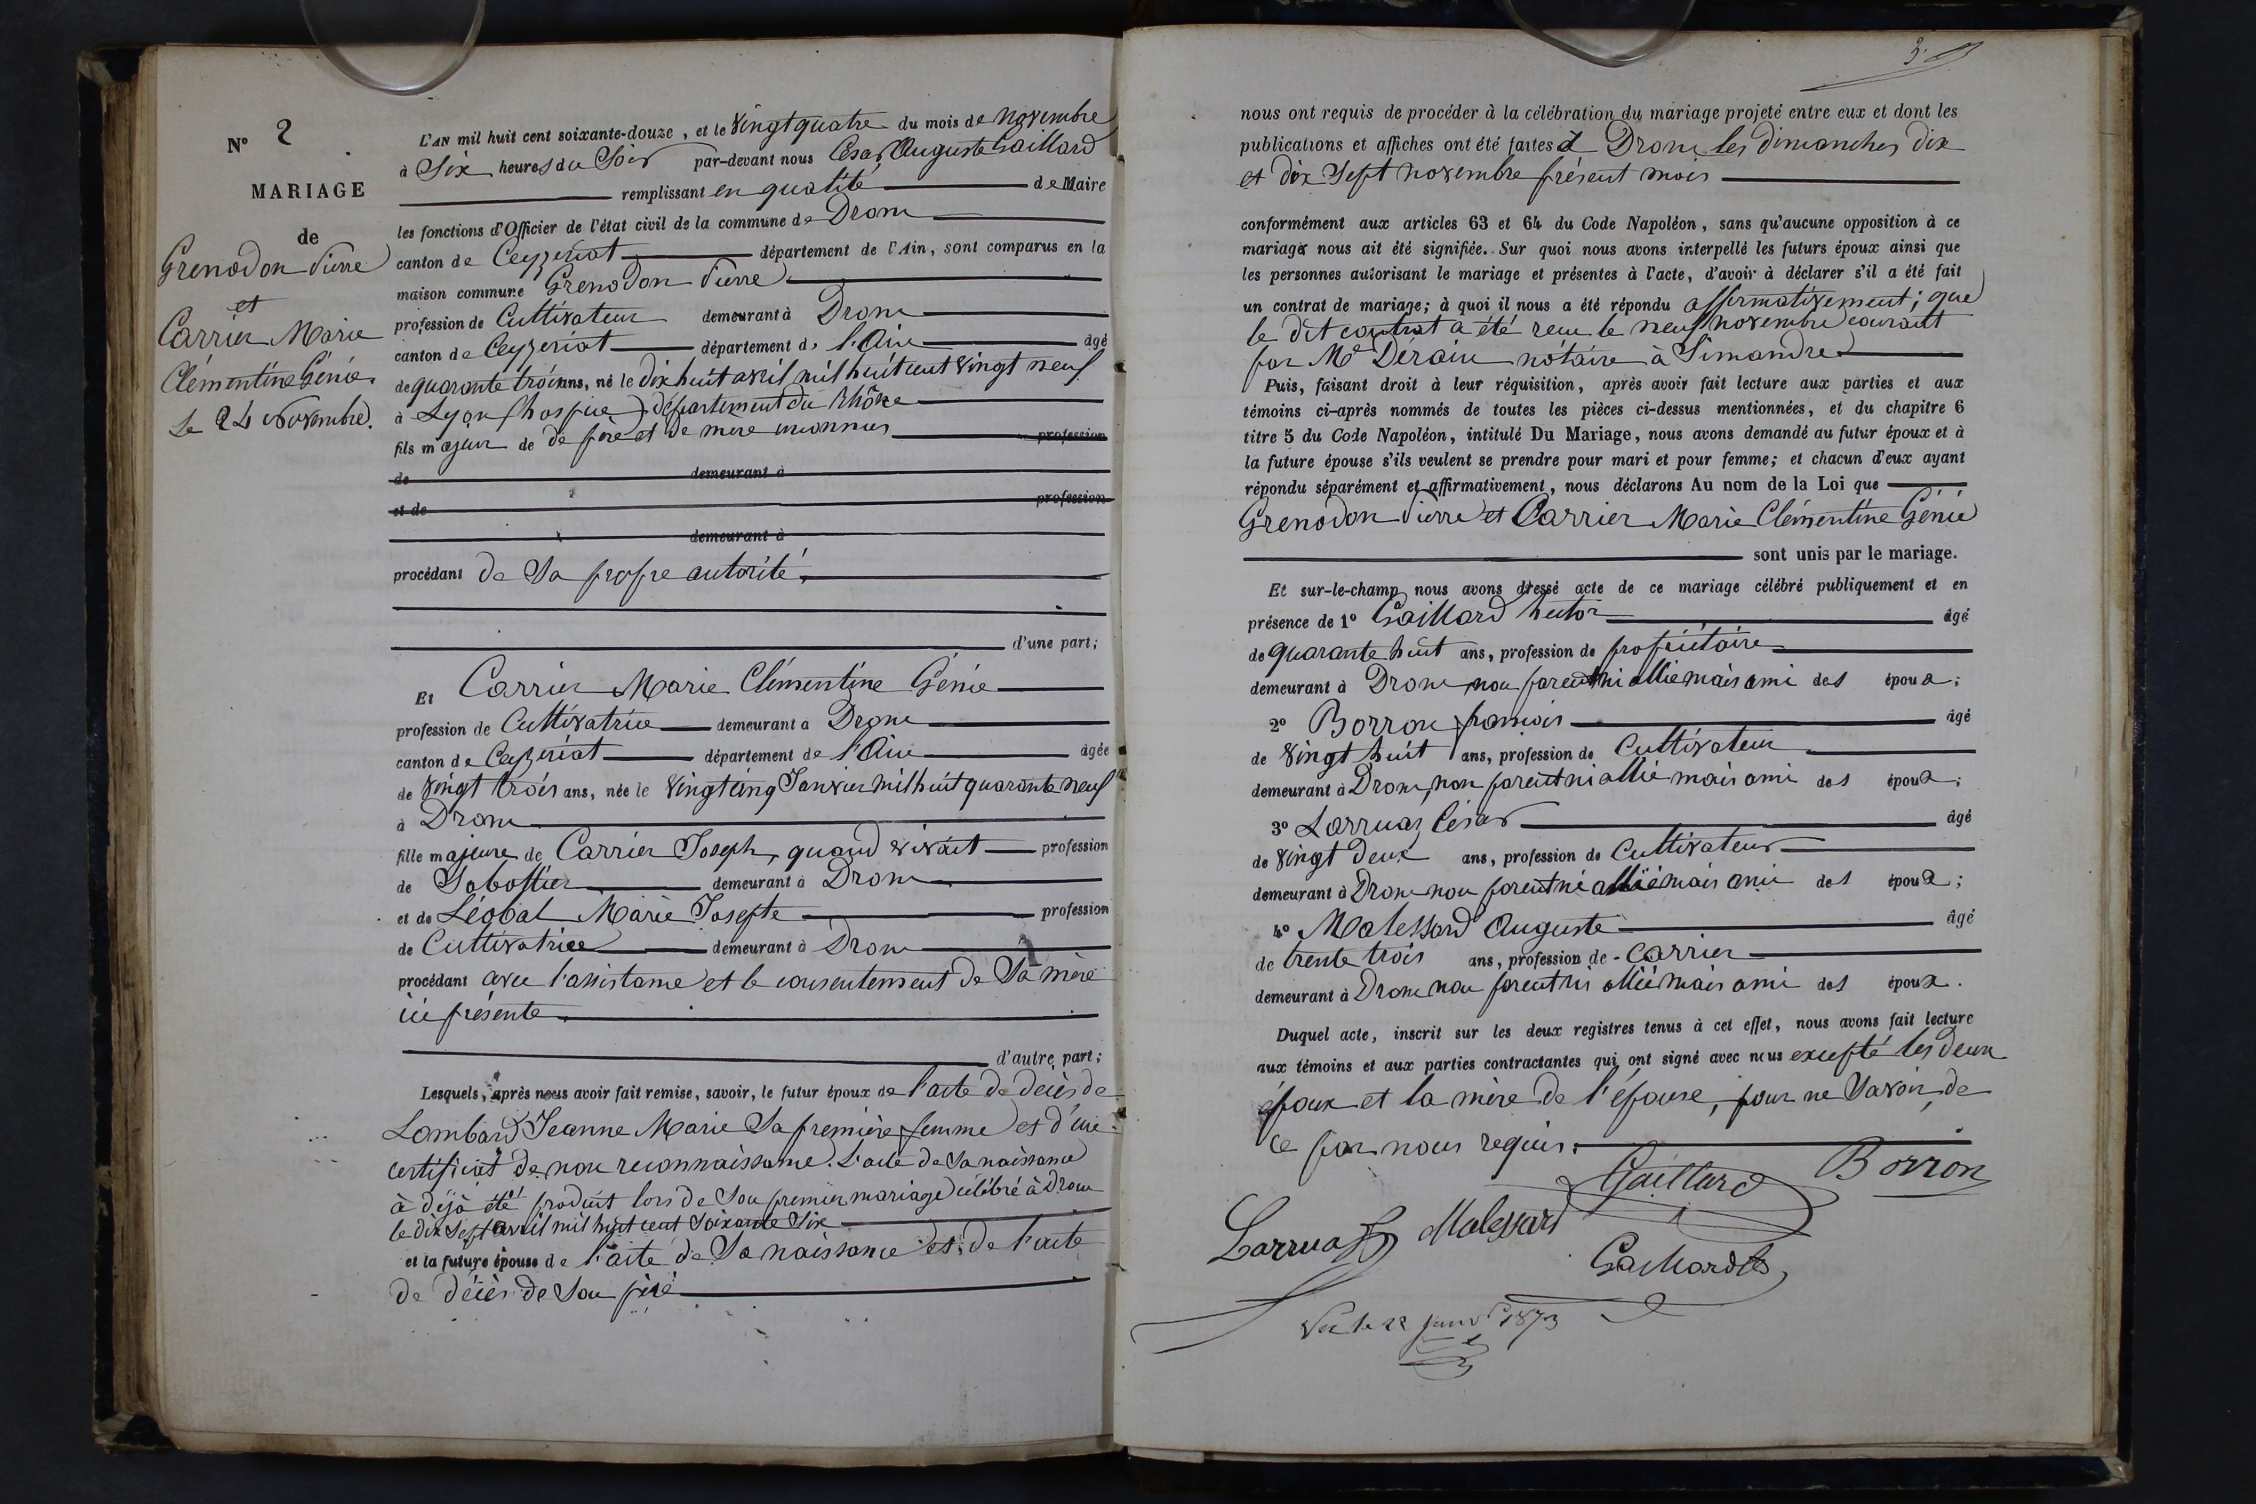 N° 2
MARIAGE
de
Grenodon Pierre
et
Carrier Marie
Clémentine Génie.
Le 24 Novembre.
L'AN mil huit cent soixante-douze, et le Vingt quatre du mois de Novembre
à Six heures du Soir par-devant nous César Auguste Gaillard
remplissant en qualité de Maire
les fonctions d'Officier de l'état civil de la commune de Drom
canton de Ceyzeriat département de l'Ain, sont comparus en la
maison commune Grenodon Pierre
profession de Cultivateur demeurant à Drom
canton de Ceyzeriat département de l'Ain âgé
de quarante trois ans, né le dix huit avril mil huit cent vingt neuf
à Lyon (hospice) département du Rhône
fils majeur de de père et de mère inconnus profession
de demeurant à
et de profession
demeurant à
procédant de Sa propre autorité.
d'une part;
Et Carrier Marie Clémentine Génie
profession de Cultivatrice demeurant à Drom
canton de Ceyzeriat département de l'Ain âgée
de vingt trois ans, née le Vingt cinq Janvier mil huit quarante neuf
à Drom
fille majeure de Carrier Joseph, quand vivait profession
de Sabottier demeurant à Drom
et de Léobal Marie Josepte profession
de Cultivatrice demeurant à Drom
procédant avec l'assistance et le consentement de Sa mère
ici présente.
d'autre part;
Lesquels, après nous avoir fait remise, savoir, le futur époux de l'acte de décès de
Lombard Jeanne Marie Sa première femme et d'un
certificat de non reconnaissance. L'acte de Sa naissance
à déjà été produit lors de Son premier mariage célébré à Drom
le dix Sept avril mil huit cent Soixante Six
et la future épouse de l'acte de Sa naissance et de l'acte
de décès de Son père
3
nous ont requis de procéder à la célébration du mariage projeté entre eux et dont les
publications et affiches ont été faites à Drom les dimanches dix
et dix Sept novembre présent mois
conformément aux articles 63 et 64 du Code Napoléon, sans qu'aucune opposition à ce
mariage nous ait été signifiée. Sur quoi nous avons interpellé les futurs époux ainsi que
les personnes autorisant le mariage et présentes à l'acte, d'avoir à déclarer s'il a été fait
un contrat de mariage; à quoi il nous a été répondu affirmativement; que
le dit contrat a été reçu le neuf novembre courant
par Me Dérain notaire à Simandre
Puis, faisant droit à leur réquisition, après avoir fait lecture aux parties et aux
témoins ci-après nommés de toutes les pièces ci-dessus mentionnées, et du chapitre 6
titre 5 du Code Napoléon, intitulé Du Mariage, nous avons demandé au futur époux et à
la future épouse s'ils veulent se prendre pour mari et pour femme; et chacun d'eux ayant
répondu séparément et affirmativement, nous déclarons Au nom de la Loi que
Grenodon Pierre et Carrier Marie Clémentine Génie
sont unis par le mariage.
Et sur-le-champ nous avons dressé acte de ce mariage célébré publiquement et en
présence de 1° Gaillard hector âgé
de quarante huit ans, profession de propriétaire
demeurant à Drom, non parent ni allié mais ami des époux;
2° Borron françois âgé
de vingt huit ans, profession de Cultivateur
demeurant à Drom, non parent ni allié mais ami des époux;
3° Larruaz César âgé
de vingt deux ans, profession de Cultivateur
demeurant à Drom non parent ni allié mais ami des époux;
4° Malessard Auguste âgé
de trente trois ans, profession de - Carrier
demeurant à Drom non parent ni allié mais ami des époux.
Duquel acte, inscrit sur les deux registres tenus à cet effet, nous avons fait lecture
aux témoins et aux parties contractantes qui ont signé avec nous excepté les deux
époux et la mère de l'épouse, pour ne Savoir, de
ce par nous requis.
Gaillard Borron
Larruaz Malessard
Gaillard
Vu le 22 Janvr 1873